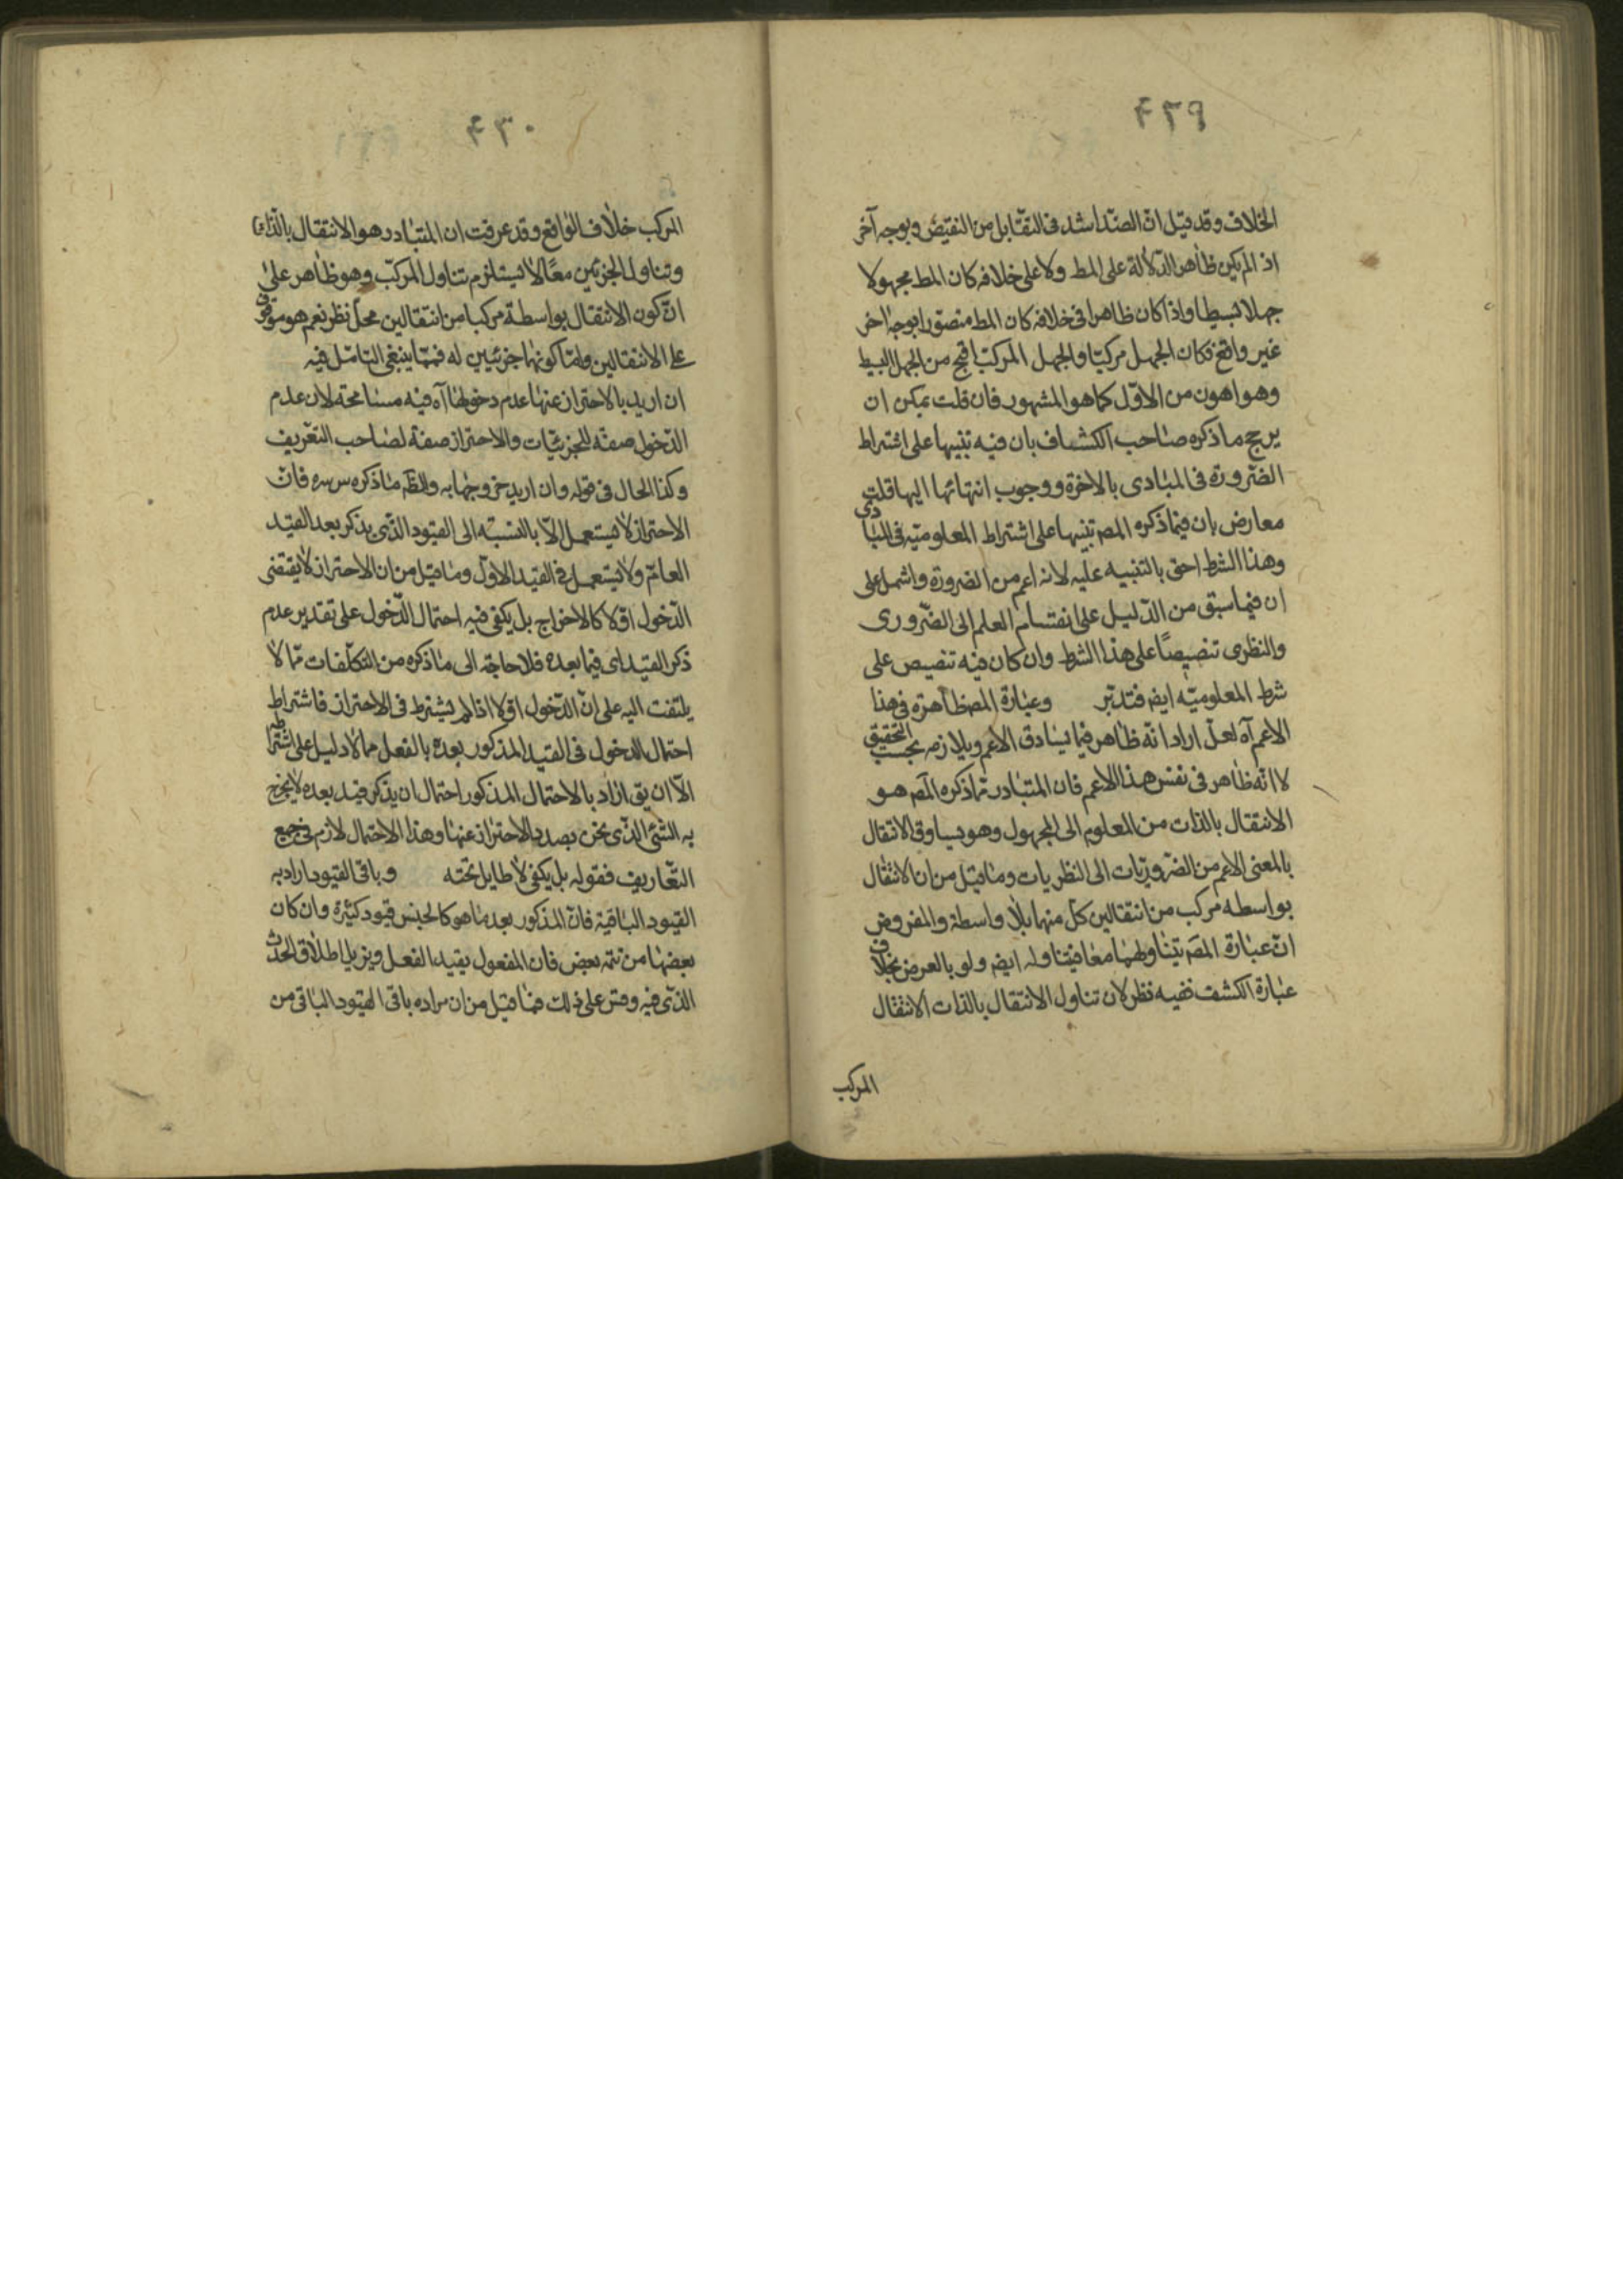 ٤٢٩
الخلاف وقد قيل ان الضد اشد فى التقابل من النقيض وبوجه آخر
اذ الم يكن ظاهر الدلالة على المط ولا على خلافه كان المط مجهولا
جهلا بسيطا واذا كان ظاهرا فى خلافه كان المط متصورا بوجه اخر
غير واقع فكان الجهل مركبا والجهل المركب اقبح من الجهل البسيط
وهو اهون من الاول كما هو المشهور فان قلت يمكن ان
يرجح ما ذكره صاحب الكشاف بان فيه تنبيها على اشتراط
الضرورة فى المبادى بالاخرة ووجوب انتهائها اليها قلت
معارض بان فيما ذكره المصـ تنبيها على اشتراط المعلومية فى المبادى
وهذا الشرط احق بالتنبيه عليه لانه اعم من الضرورة واشمل على
ان فيما سبق من الدليل على انقسام العلم الى الضرورى
والنظرى تنصيصًا على هذا الشرط وان كان فيه تنصيص على
شرط المعلومية ايضـ فتدبر وعبارة المصـ ظاهرة فى هذا
الاعم آه لعل اراد انه ظاهر فيما يساوق الاعم ويلازمه بحسب التحقيق
لا انه ظاهر فى نفس هذا الاعم فان المتبادر مما ذكره المصـ هو
الانتقال بالذات من المعلوم الى المجهول وهو يساوق الانتقال
بالمعنى الاعم من الضروريات الى النظريات وما قيل من ان الانتقال
بواسطه مركب من انتقالين كل منهما بلا واسطة والمفروض
ان عبارة المصـ يتناولهما معا فيتناوله ايضـ ولو بالعرض بخلاف
عبارة الكشف ففيه نظر لان تناول الانتقال بالذات الانتقال
المركب
٤٣٠
المركب خلاف الواقع وقد عرفت ان المتبادر هو الانتقال بالذات
وتناول الجزئين معًا لا يستلزم تناول المركب وهو ظاهر على
ان كون الانتقال بواسطة مركبا من انتقالين محل نظر نعم هو موقوف
على الانتقالين واما كونهما جزئيين له فمما ينبغى التامل فيه
ان اريد بالاحتراز عنها عدم دخولها آه فيه مسامحة لان عدم
الدخول صفة للجزئيات والاحتراز صفة لصاحب التعريف
وكذا الحال فى قوله وان اريد خروجها به والظـ ما ذكره س سره فان
الاحتراز لا يستعمل الا بالنسبة الى القيود الذى يذكر بعد القيد
العام ولا يستعمل فى القيد الاول وما قيل من ان الاحتراز لا يقتضى
الدخول اولا كالاخراج بل يكفى فيه احتمال الدخول على تقدير عدم
ذكر القيد اى فيما بعده فلا حاجة الى ما ذكره من التكلفات مما لا
يلتفت اليه على ان الدخول اولا اذا لم يشترط فى الاحتراز فاشتراط
احتمال الدخول فى القيد المذكور بعده بالفعل مما لا دليل على اشتراطه
الا ان يق اراد بالاحتمال المذكور احتمال ان يذكر قيد بعده لا يخرج
به الشئ الذى نحن بصدد الاحتراز عنها وهذا الاحتمال لازم فى جميع
التعاريف فقوله بل يكفى لا طايل تحته وباقى القيود اراد به
القيود الباقية فان المذكور بعد ما هو كالجنس قيود كثيرة وان كان
بعضها من تتمه بعض فان المفعول يقيد الفعل ويزيل اطلاق الحدث
الذى فيه وقس على ذلك فما قيل من ان مراده باقى القيود الباقى من